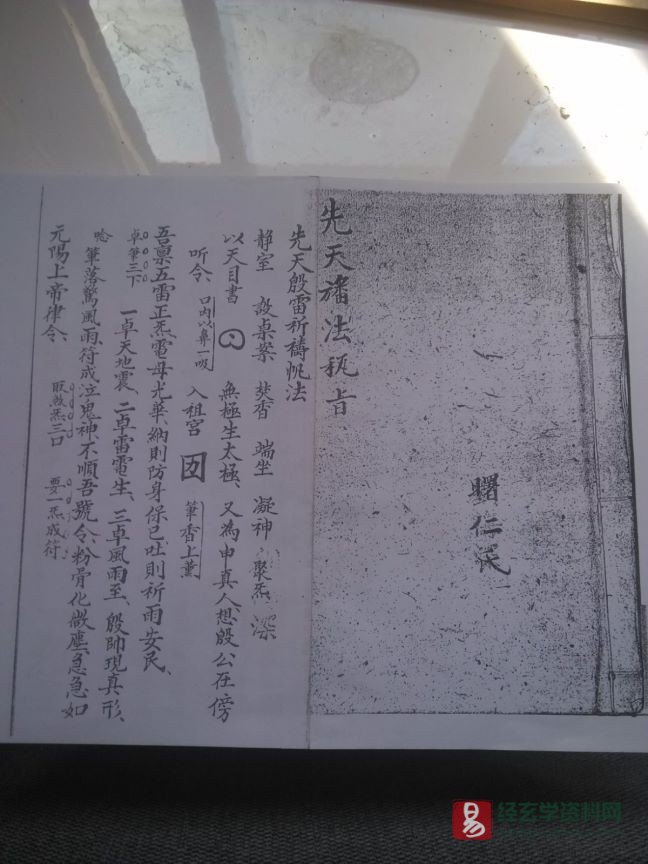 先天旛法秘旨
曙仁氏
先天殷雷祈禱帆法
静室 設桌案 焚香 端坐 凝神 聚炁 深
以天目書 無極生太極、又為申真人、想殷公在傍
听令、口内以鼻一吸 入祖宫 筆香上薰
吾禀五雷正炁、電母光華、納則防身保己、吐則祈雨安民、
卓筆三下 一卓天地震、二卓雷電生、三卓風雨至、殷帥現真形、
唸 筆落驚風雨、符成泣鬼神、不順吾號令、粉骨化微塵、急急如
元陽上帝律令、 取煞炁三口 要一炁成符
经玄学资料网